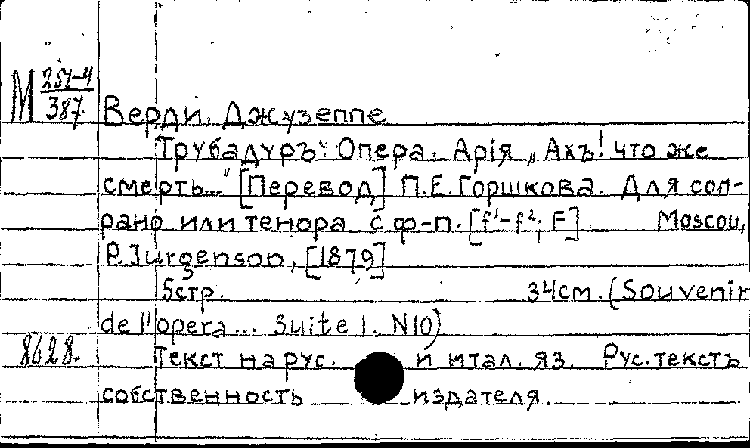 М 257-4
387. Верди, Джузеппе
"Трубадуръ". Опера. Арія „Ахъ! что же
смерть..." [Перевод] П.Е. Горшкова. Для соп-
рано или тенора с ф-п. [f¹-f²; F] Moscou,
P. Jurgenson, [1879]
5 стр. 34 см. (Souvenir
de l'opera... Suite 1. N10)
8628. Текст на рус. и итал. яз. Рус. текстъ
собственность издателя.